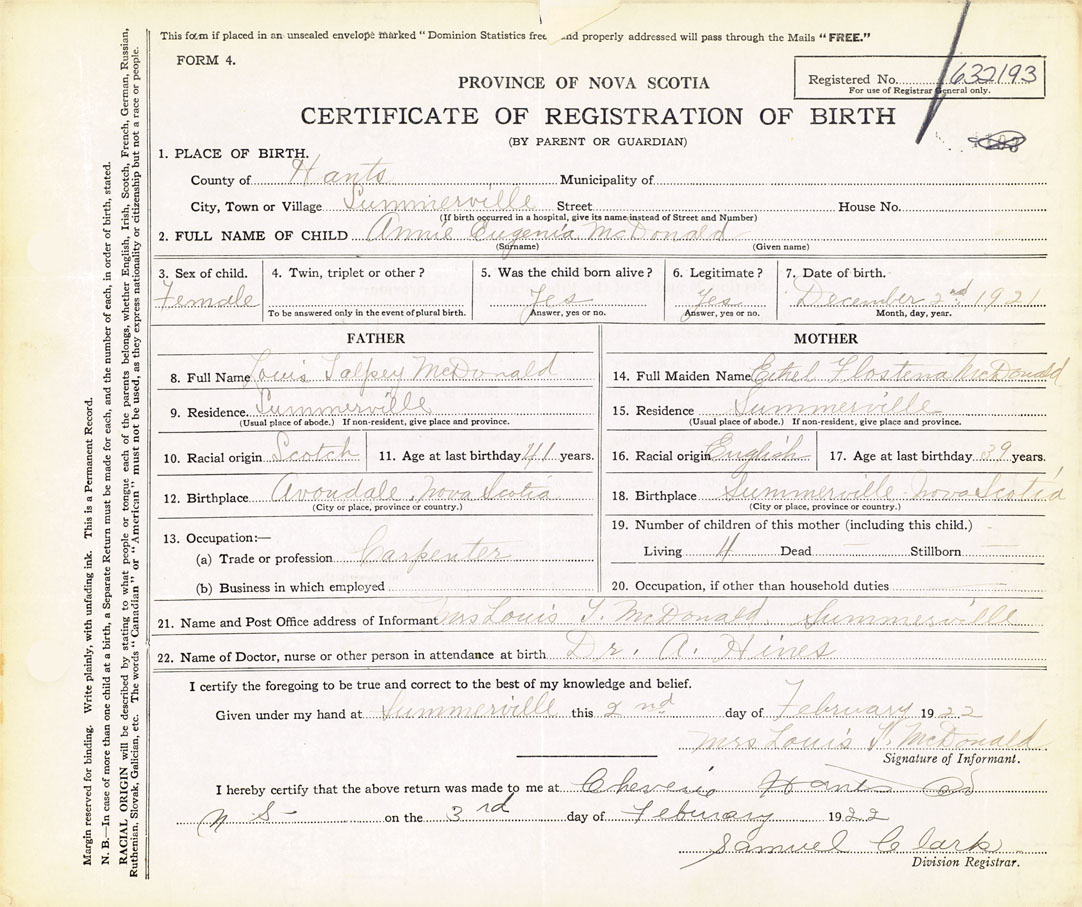 This form if placed in an unsealed envelope marked "Dominion Statistics free and properly addressed will pass through the Mails "FREE."
FORM 4.
Registered No. 632193
For use of Registrar General only.
PROVINCE OF NOVA SCOTIA
CERTIFICATE OF REGISTRATION OF BIRTH
(BY PARENT OR GUARDIAN)
1. PLACE OF BIRTH.
County of Hants Municipality of
City, Town or Village Summerville Street House No.
(If birth occurred in a hospital, give its name instead of Street and Number)
2. FULL NAME OF CHILD Annie Eugenia McDonald
(Surname) (Given name)
3. Sex of child. 4. Twin, triplet or other? 5. Was the child born alive? 6. Legitimate? 7. Date of birth.
Female Yes Yes December 2nd 1921
To be answered only in the event of plural birth. Answer, yes or no. Answer, yes or no. Month, day, year.
FATHER
8. Full Name Louis McDonald
9. Residence. Summerville
(Usual place of abode.) If non-resident, give place and province.
10. Racial origin Scotch 11. Age at last birthday 41 years.
12. Birthplace Avondale, Nova Scotia
(City or place, province or country.)
13. Occupation:—
(a) Trade or profession Carpenter
(b) Business in which employed
MOTHER
14. Full Maiden Name Ethel McDonald
15. Residence Summerville
(Usual place of abode.) If non-resident, give place and province.
16. Racial origin English 17. Age at last birthday 39 years.
18. Birthplace Summerville Nova Scotia
(City or place, province or country.)
19. Number of children of this mother (including this child.)
Living 4 Dead — Stillborn —
20. Occupation, if other than household duties
21. Name and Post Office address of Informant Mrs Louis T. McDonald, Summerville
22. Name of Doctor, nurse or other person in attendance at birth Dr. A. Hines
I certify the foregoing to be true and correct to the best of my knowledge and belief.
Given under my hand at Summerville this 2nd day of February 1922
Mrs Louis T. McDonald
Signature of Informant.
I hereby certify that the above return was made to me at Cheverie Hants Co
N S - on the 3rd day of February 1922
Samuel Clark
Division Registrar.
Margin reserved for binding. Write plainly, with unfading ink. This is a Permanent Record.
N. B.—In case of more than one child at a birth, a Separate Return must be made for each, and the number of each, in order of birth, stated.
RACIAL ORIGIN will be described by stating to what people or tongue each of the parents belongs, whether English, Irish, Scotch, French, German, Russian,
Ruthenian, Slovak, Galician, etc. The words "Canadian" or "American" must not be used, as they express nationality or citizenship but not a race or people.